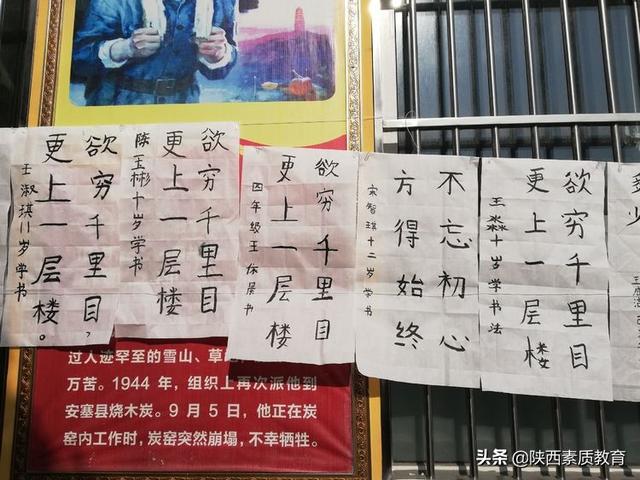 欲穷千里目，
更上一层楼。
王淑琪11岁学书
欲穷千里目
更上一层楼
陈玉彬十岁学书
欲穷千里目
更上一层楼
四年级王书
不忘初心
方得始终
宋智琪十二岁学书
欲穷千里目
更上一层楼
王淼十岁学书法
过人迹罕至的雪山、草
万苦。1944 年，组织上再次派他到
安塞县烧木炭。9 月 5 日，他正在炭
窑内工作时，炭窑突然崩塌，不幸牺牲。
头条 @陕西素质教育